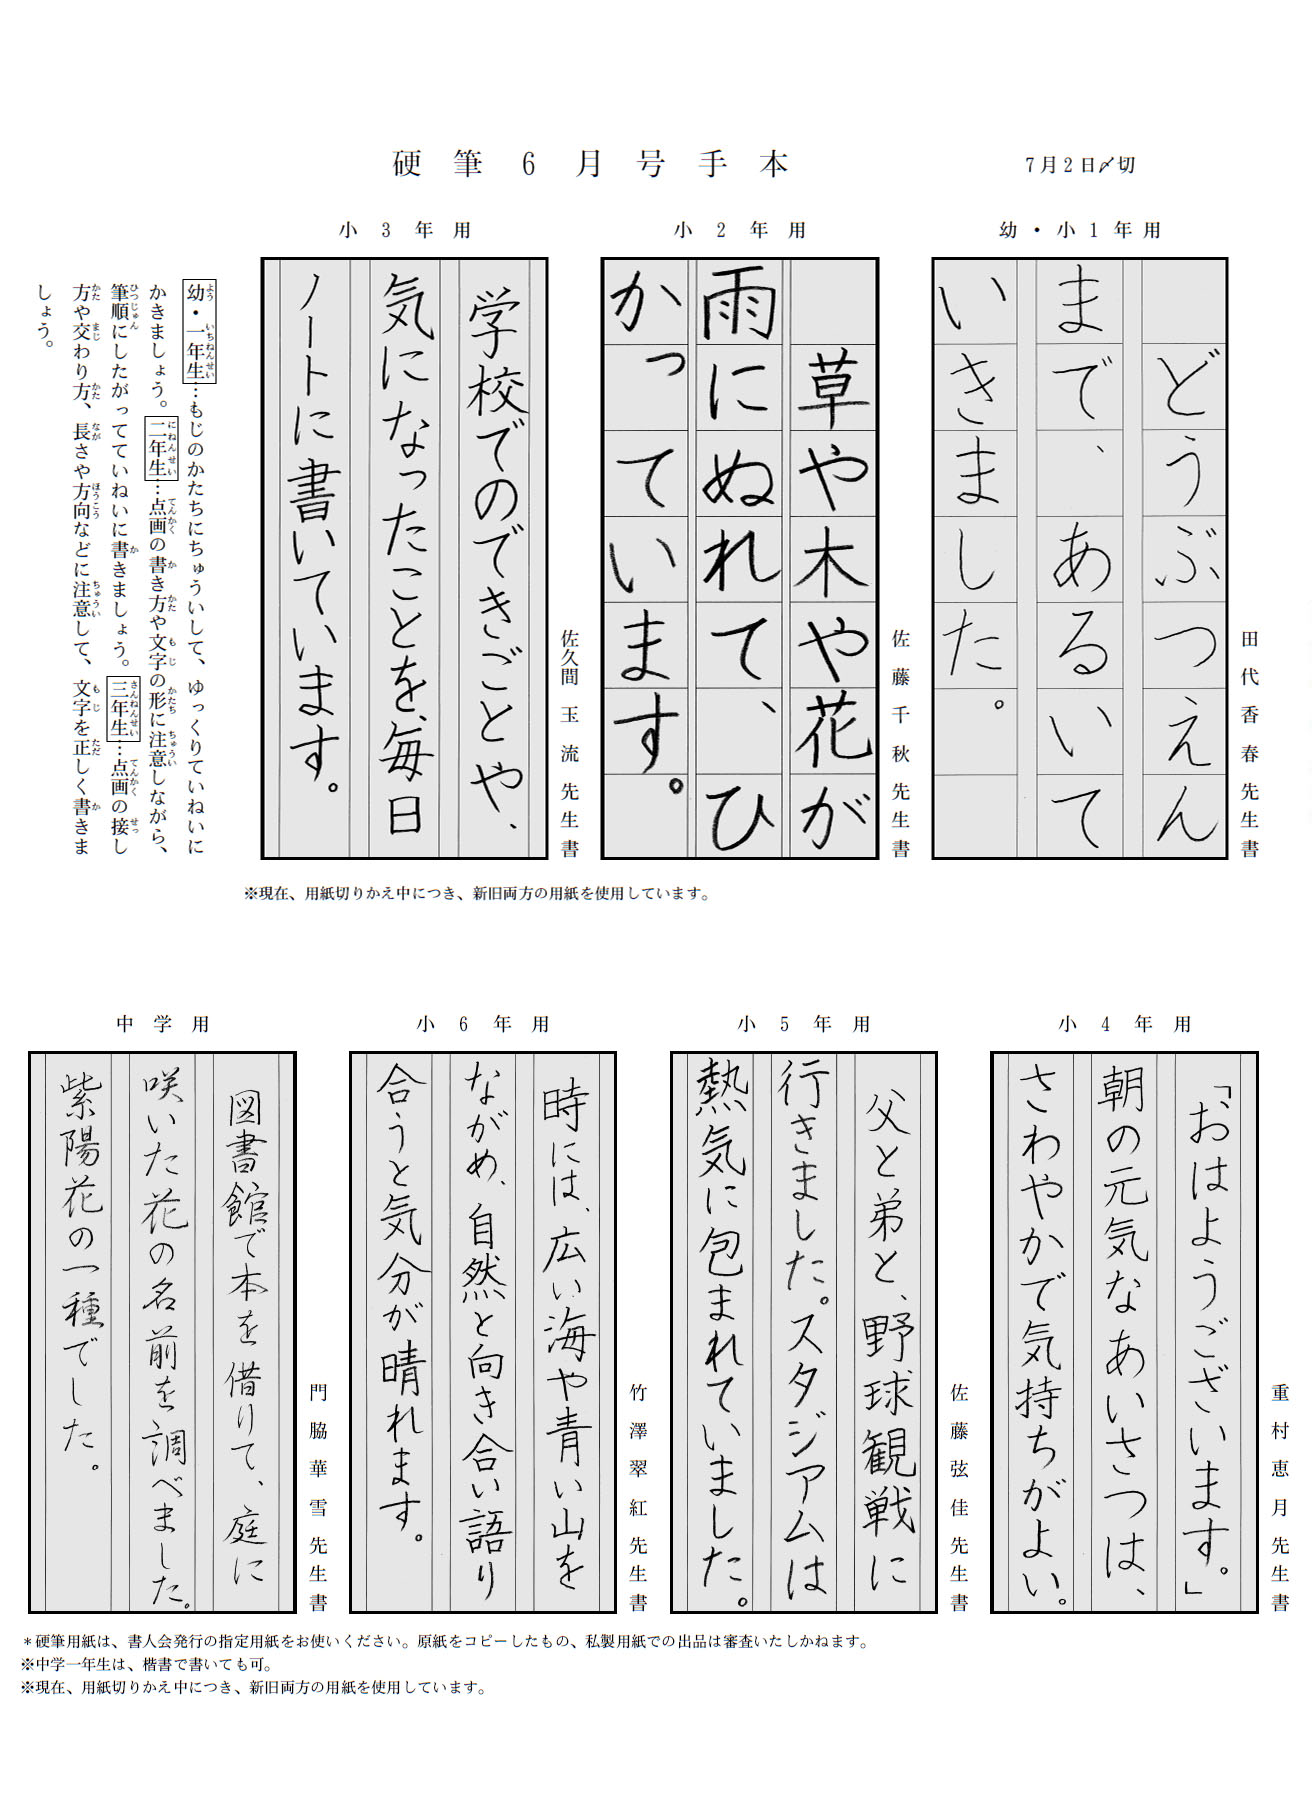 硬筆6月号手本
7月2日〆切
幼・小1年用
どうぶつえん
まで、あるいて
いきました。
田代香春先生書
小2年用
草や木や花が
雨にぬれて、ひ
かっています。
佐藤千秋先生書
小3年用
学校でのできごとや、
気になったことを、毎日
ノートに書いています。
佐久間玉流先生書
幼・一年生…もじのかたちにちゅういして、ゆっくりていねいに
かきましょう。二年生…点画の書き方や文字の形に注意しながら、
筆順にしたがってていねいに書きましょう。三年生…点画の接し
方や交わり方、長さや方向などに注意して、文字を正しく書きま
しょう。
※現在、用紙切りかえ中につき、新旧両方の用紙を使用しています。
小4年用
「おはようございます。」
朝の元気なあいさつは、
さわやかで気持ちがよい。
重村恵月先生書
小5年用
父と弟と、野球観戦に
行きました。スタジアムは
熱気に包まれていました。
佐藤弦佳先生書
小6年用
時には、広い海や青い山を
ながめ、自然と向き合い語り
合うと気分が晴れます。
竹澤翠紅先生書
中学用
図書館で本を借りて、庭に
咲いた花の名前を調べました。
紫陽花の一種でした。
門脇華雪先生書
＊硬筆用紙は、書人会発行の指定用紙をお使いください。原紙をコピーしたもの、私製用紙での出品は審査いたしかねます。
※中学一年生は、楷書で書いても可。
※現在、用紙切りかえ中につき、新旧両方の用紙を使用しています。